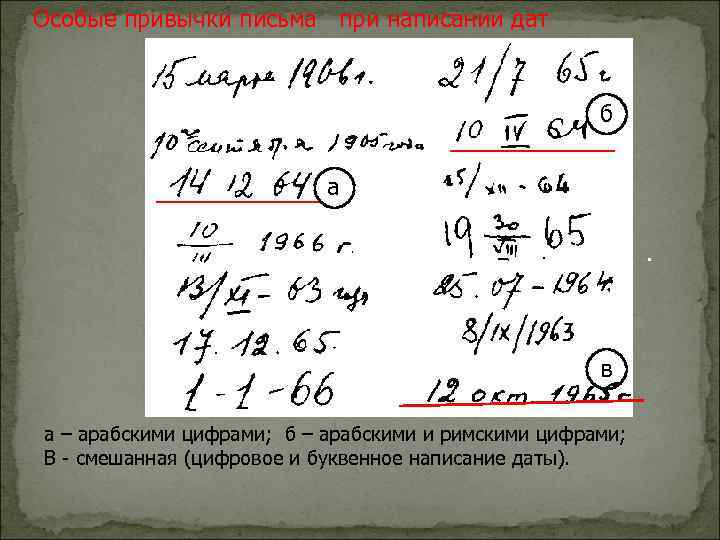 Особые привычки письма при написании дат
15 марта 1966г. 21/7 65г
б
10го сентября 1905 года 10 IV 64
14 12 64 а 15/XII - 64
10/III 1966 г. 19 30/VIII 65
13/XI - 63 года 25. 07 - 1964.
17. 12. 65. 8/IX/1963
1-1-66 в
12 окт. 1965г
а – арабскими цифрами; б – арабскими и римскими цифрами;
В - смешанная (цифровое и буквенное написание даты).